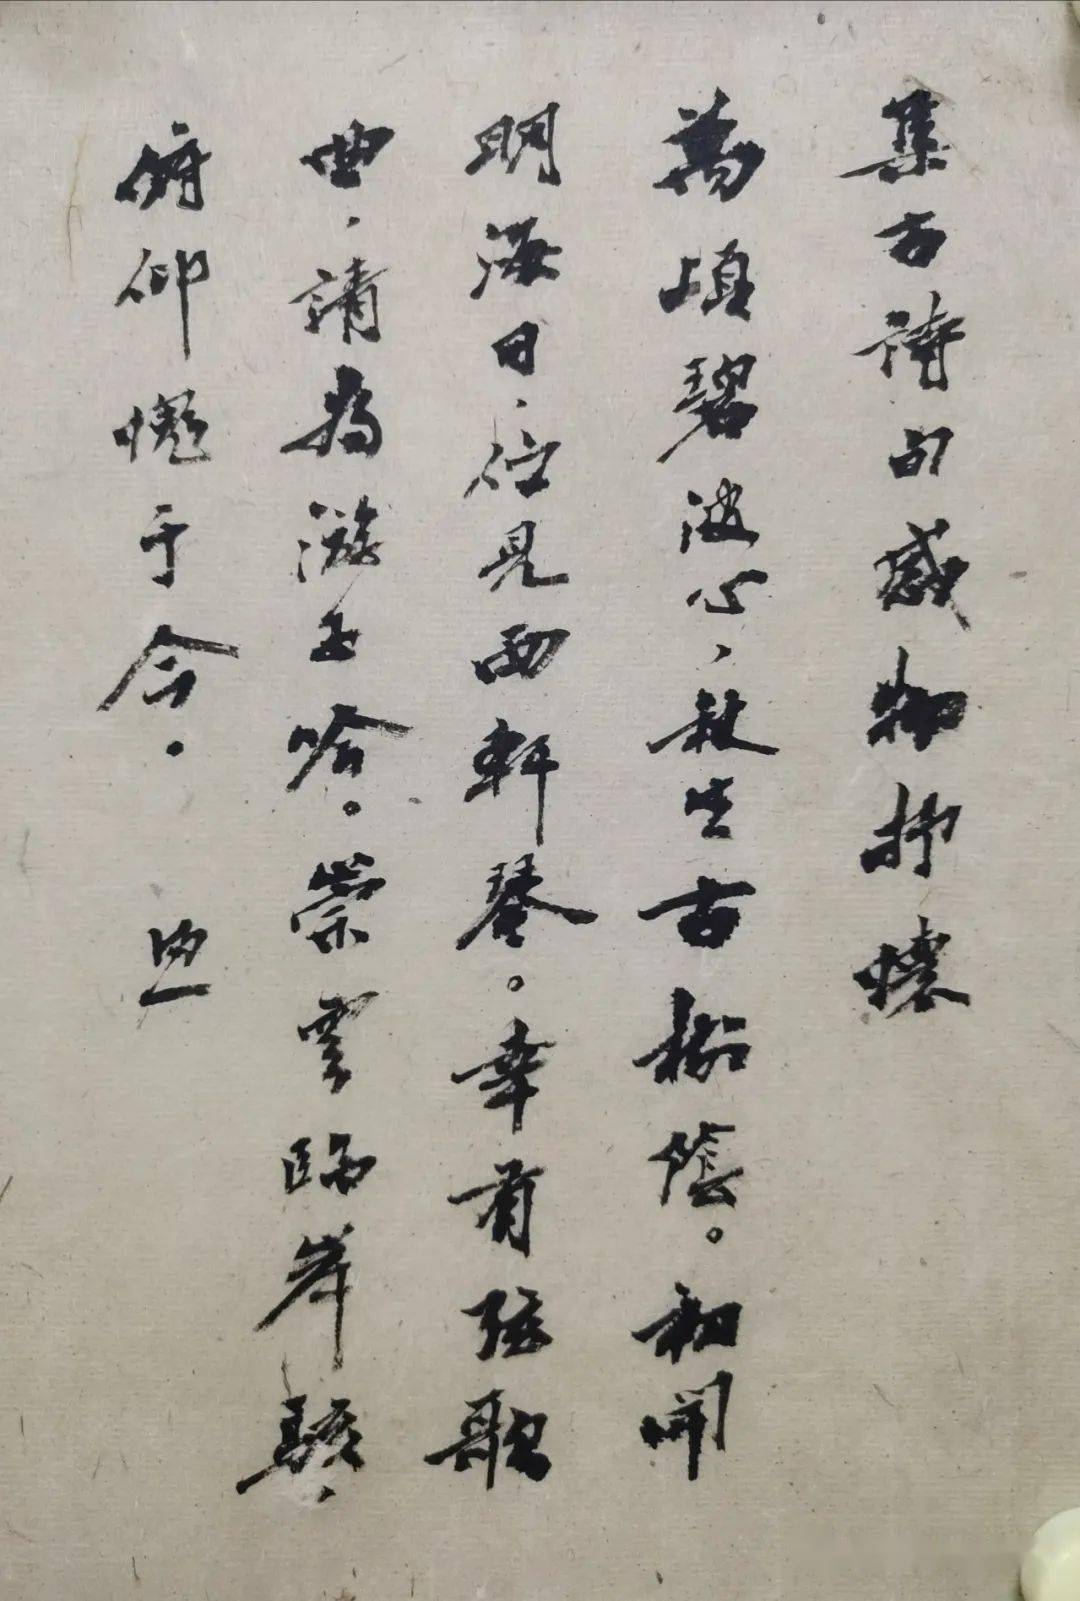 集古詩句感物抒懷
萬頃碧波心、秋生古柳陰。初開
明海日、見西軒琴。幸有弦歌
曲、請為游子吟。崇雲臨岸駭、
俯仰愧于今。